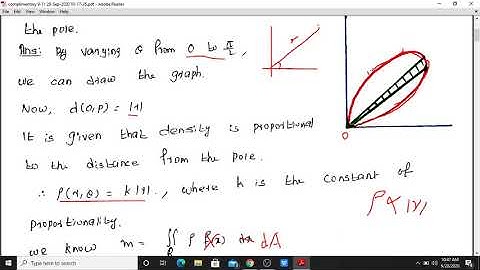 complimentary 9-11 29-Sep-2020 10-17-25.pdf - Adobe Reader
File Edit View Window Help
the pole.
Ans: By varying θ from 0 to π/2,
we can draw the graph.
Now, d(0,P) = |r|
It is given that density is proportional
to the distance from the pole.
∴ ρ(r,θ) = k|r|., where k is the constant of
proportionality.
ρ ∝ |r|
we know m = ∬ ρ dA
R
r
0
Type here to search
10:47 AM